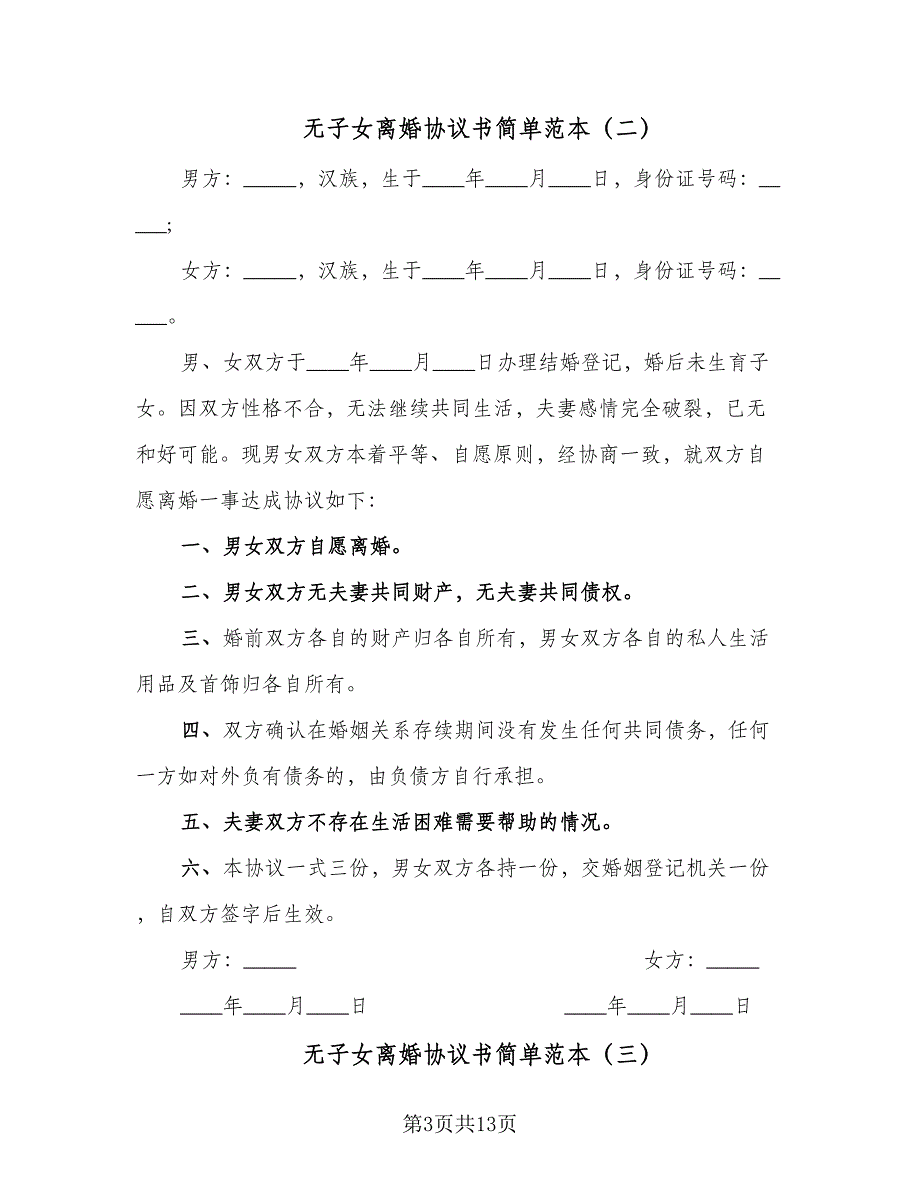 无子女离婚协议书简单范本（二）
男方：_____，汉族，生于____年____月____日，身份证号码：__
___;
女方：_____，汉族，生于____年____月____日，身份证号码：__
___。
男、女双方于____年____月____日办理结婚登记，婚后未生育子
女。因双方性格不合，无法继续共同生活，夫妻感情完全破裂，已无
和好可能。现男女双方本着平等、自愿原则，经协商一致，就双方自
愿离婚一事达成协议如下：
一、男女双方自愿离婚。
二、男女双方无夫妻共同财产，无夫妻共同债权。
三、婚前双方各自的财产归各自所有，男女双方各自的私人生活
用品及首饰归各自所有。
四、双方确认在婚姻关系存续期间没有发生任何共同债务，任何
一方如对外负有债务的，由负债方自行承担。
五、夫妻双方不存在生活困难需要帮助的情况。
六、本协议一式三份，男女双方各持一份，交婚姻登记机关一份
，自双方签字后生效。
男方：_____ 女方：_____
____年____月____日 ____年____月____日
无子女离婚协议书简单范本（三）
第3页共13页